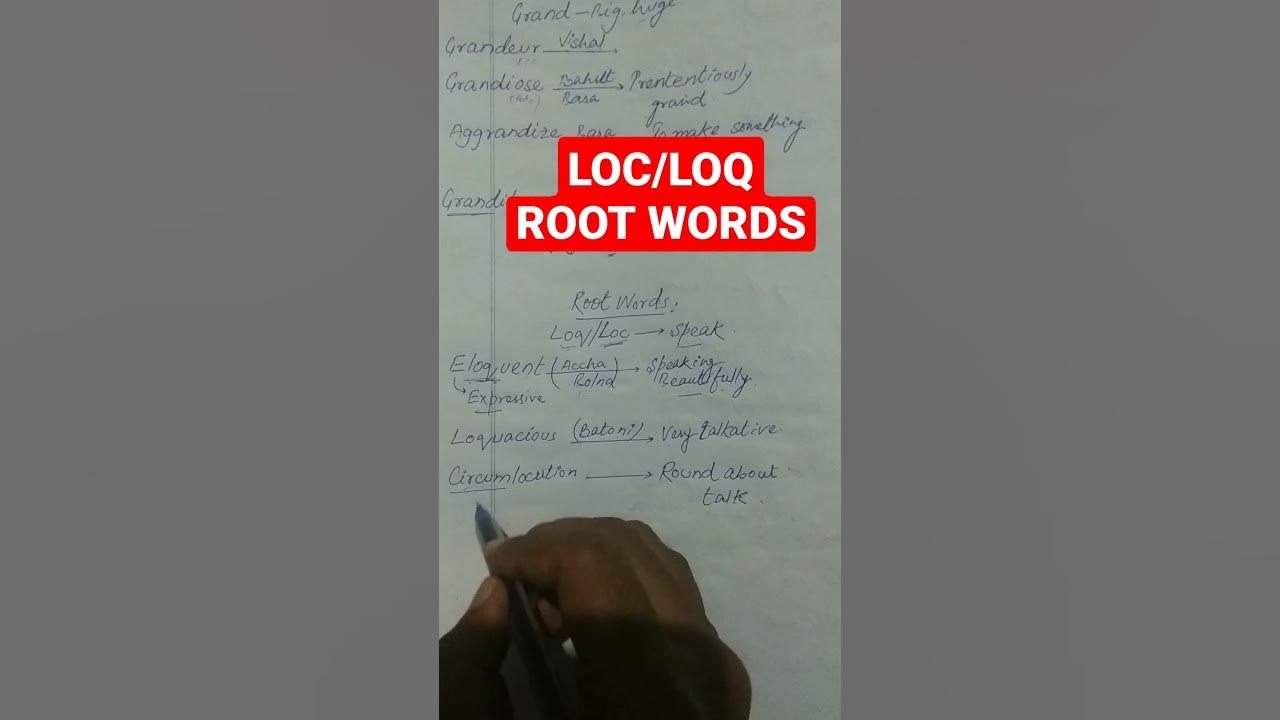 Grand - Big, huge
Grandeur Vishal
Grandiose Bahut Prententiously
Basa grand.
Aggrandize Basa To make something
LOC/LOQ
ROOT WORDS
Grandi
Root Words:
Loq/Loc → speak.
Eloquent (Accha) → Speaking
Bolna Beautifully
Expressive
Loquacious (Batoni) → Very talkative.
Circumlocution → Round about
talk.